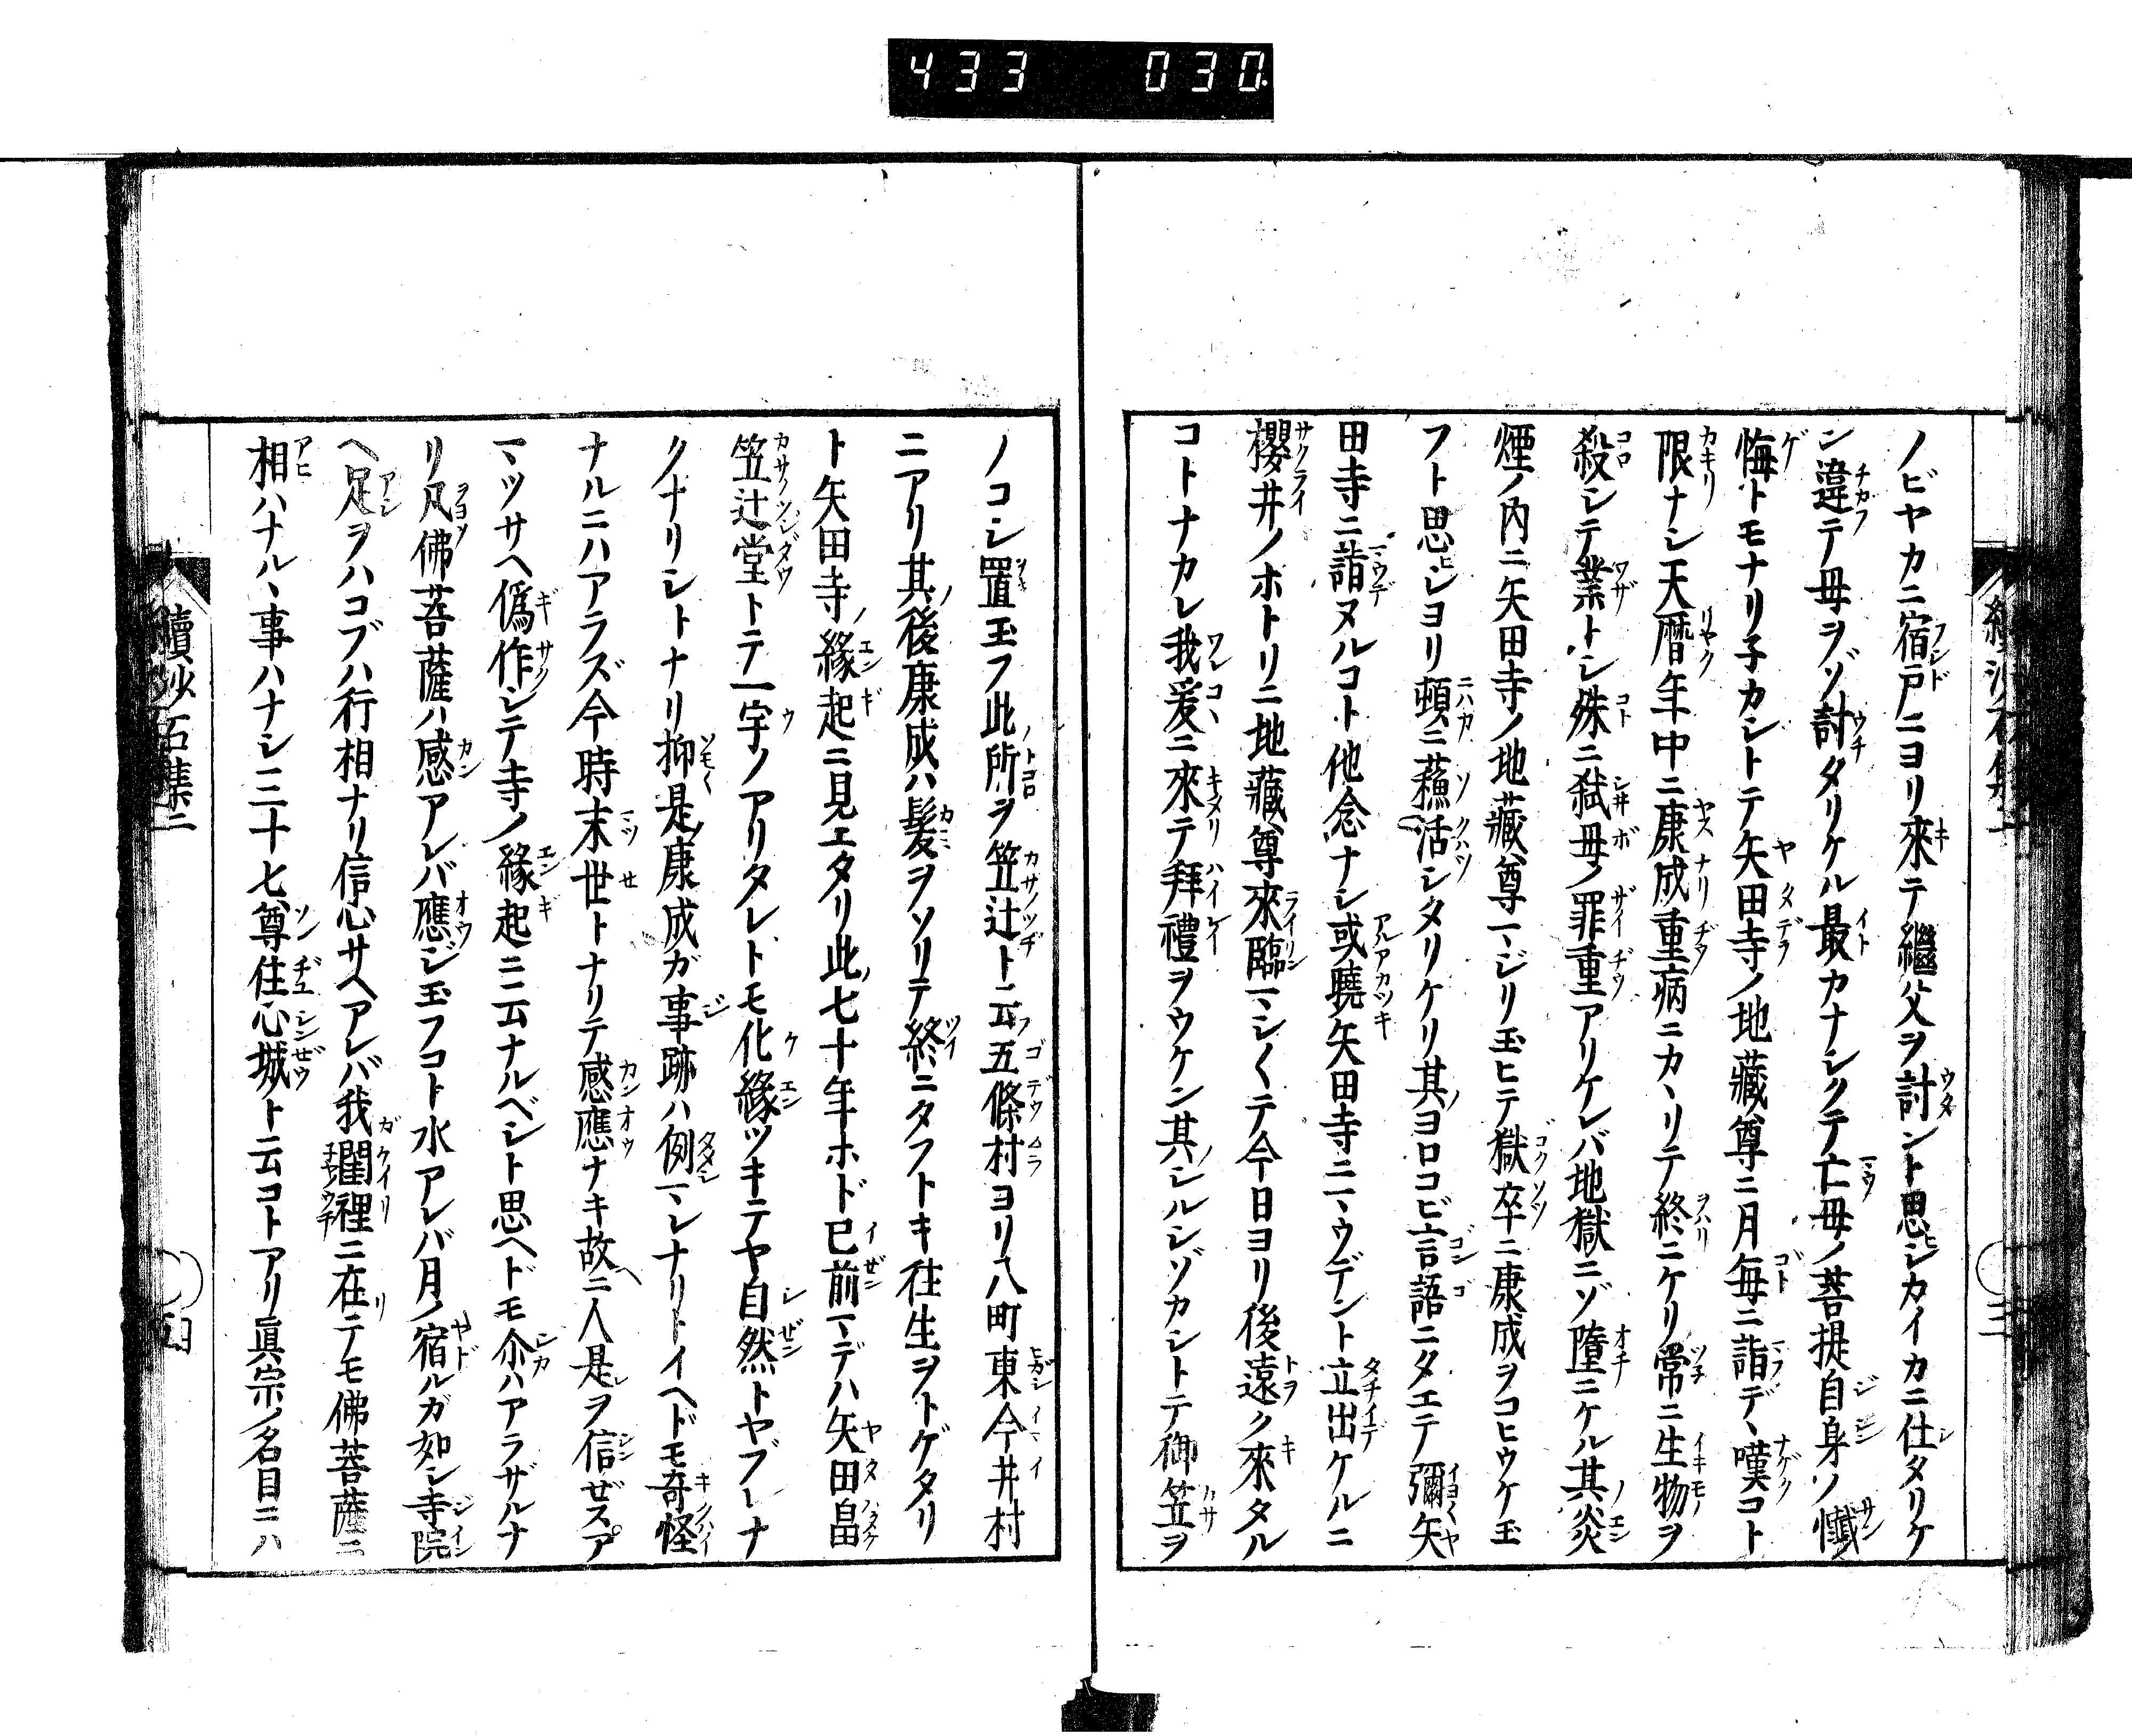 433 030
ノビヤカニ宿戸ニヨリ來テ繼父ヲ討ント思ヒシカイカニ仕タリケ
ン違テ母ヲゾ討タリケル最カナシクテ亡母ノ菩提自身ソ懺
悔トモナリ子カシトテ矢田寺ノ地藏尊ニ月毎ニ詣デヽ嘆コト
限ナシ天暦年中ニ康成重病ニカヽリテ終ニケリ常ニ生物ヲ
殺シテ業トシ殊ニ弑母ノ罪重アリケレバ地獄ニゾ墮ニケル其炎
煙ノ内ニ矢田寺ノ地藏尊マジリ玉ヒテ獄卒ニ康成ヲコヒウケ玉
フト思ヒシヨリ頓ニ蘓活シタリケリ其ヨロコビ言語ニタエテ彌矢
田寺ニ詣ヌルコト他念ナシ或曉矢田寺ニマウデント立出ケルニ
櫻井ノホトリニ地藏尊來臨マシ〱テ今日ヨリ後遠ク來タル
コトナカレ我爰ニ來テ拜禮ヲウケン其シルシゾカシトテ御笠ヲ
ノコシ置玉フ此所ヲ笠辻ト云五條村ヨリ八町東今井村
ニアリ其後康成ハ髮ヲソリテ終ニタフトキ往生ヲトゲタリ
ト矢田寺ノ緣起ニ見エタリ此七十年ホド已前マデハ矢田畠
笠辻堂トテ一宇ノアリタレトモ化緣ツキテヤ自然トヤブレナ
クナリシトナリ抑是康成ガ事跡ハ例マレナリトイヘドモ奇怪
ナルニハアラズ今時末世トナリテ感應ナキ故ニ人是ヲ信ゼズア
マツサヘ僞作シテ寺ノ緣起ニ云ナルベシト思ヘドモ尒ハアラザルナ
リ凡佛菩薩ハ感アレバ應ジ玉フコト水アレバ月ノ宿ルガ如シ寺院
ヘ足ヲハコブハ行相ナリ信心サヘアレバ我閨裡ニ在テモ佛菩薩ニ
相ハナルヽ事ハナシ三十七尊住心城ト云コトアリ眞宗ノ名目ニハ
續沙石集二
四